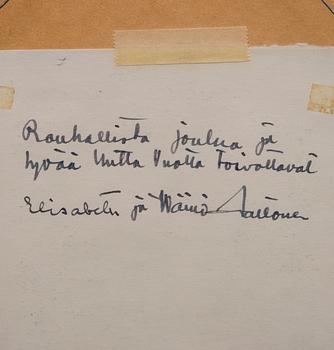 Rauhallista joulua ja
hyvää Uutta Vuotta toivottavat
Elisabeth ja Wäinö Aaltonen